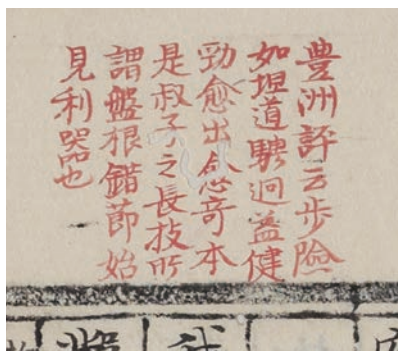 豊洲評云步險
如坦道騁迥益健
勁愈出愈竒本
是叔子之長技所
謂盤根錯節始
見利器也